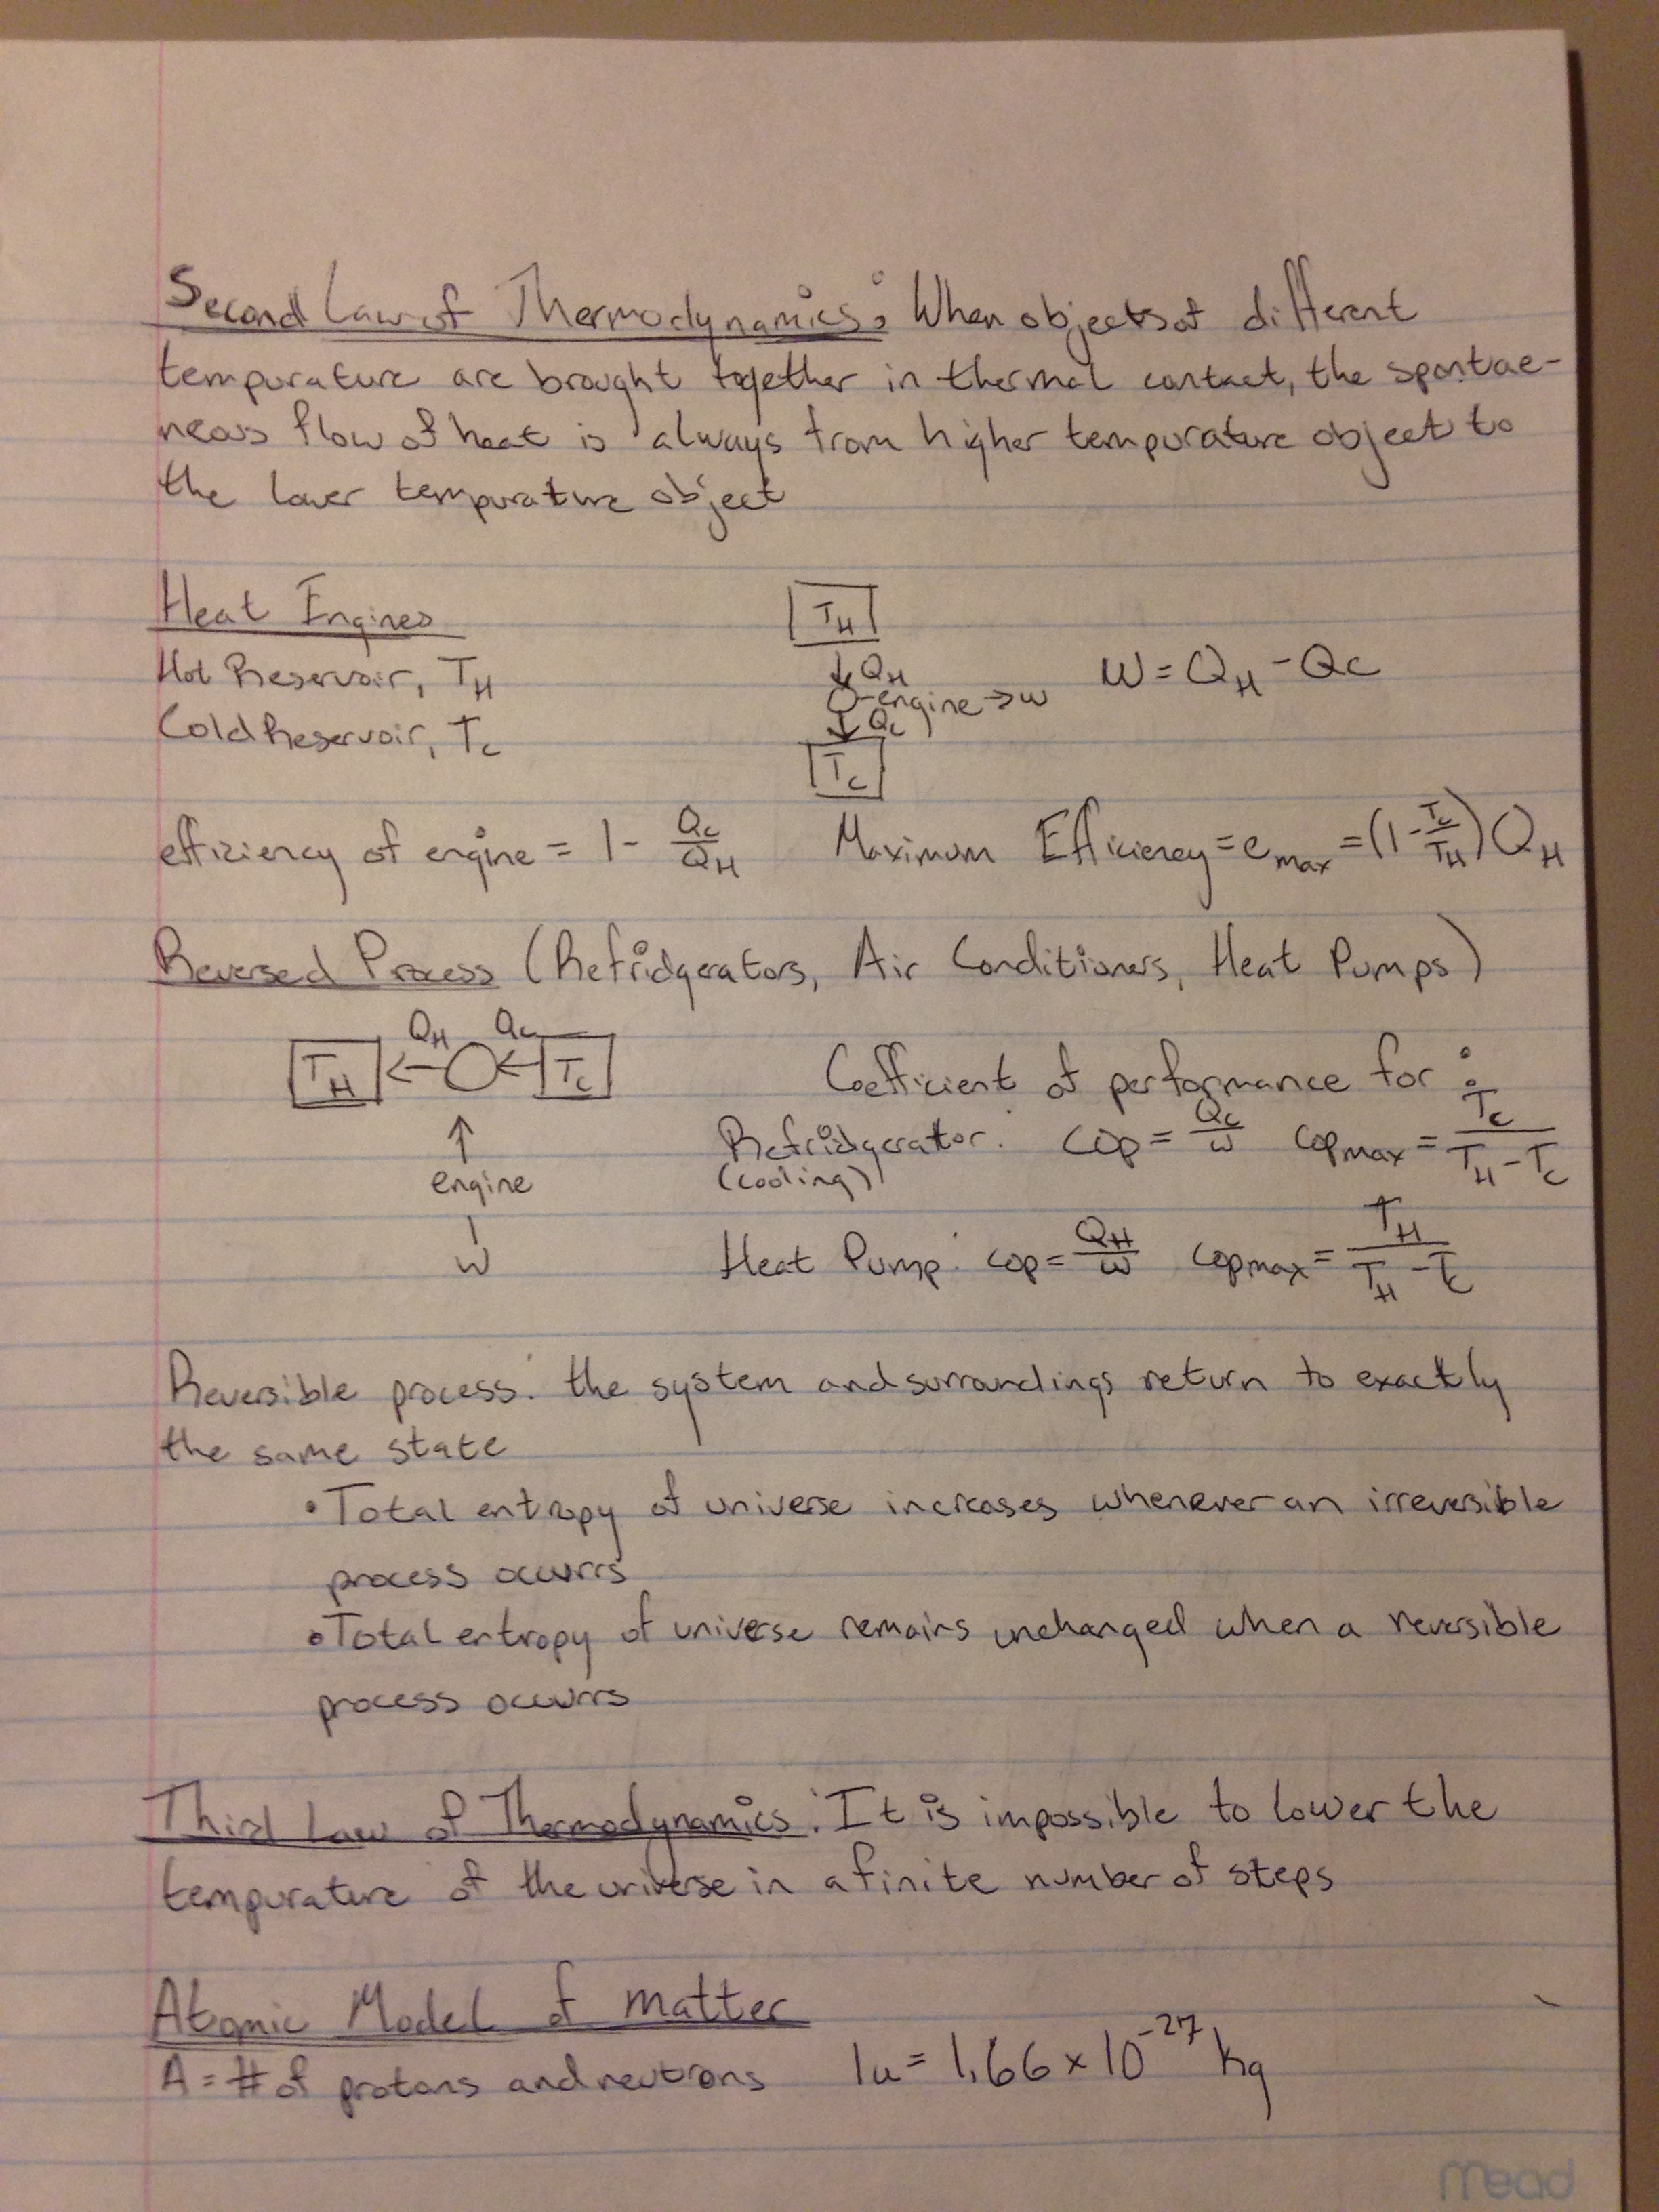 Second Law of Thermodynamics: When objects at different
tempurature are brought together in thermal contact, the spontae-
neous flow of heat is always from higher tempurature object to
the lower tempurature object
Heat Engines
Hot Reservoir, T_H
Cold Reservoir, T_c
T_H
↓ Q_H
O-engine → w
↓ Q_c
T_c
W = Q_H - Qc
efficiency of engine = 1 - Q_c/Q_H
Maximum Efficiency = e_max = (1 - T_c/T_H) Q_H
Reversed Process (Refridgerators, Air Conditioners, Heat Pumps)
Q_H Q_c
T_H ← O ← T_c
↑
engine
|
W
Coefficient of performance for:
Refridgerator: cop = Q_c/w cop_max = T_c/(T_H - T_c)
(cooling)
Heat Pump: cop = Q_H/w cop_max = T_H/(T_H - T_c)
Reversible process: the system and surroundings return to exactly
the same state
• Total entropy of universe increases whenever an irreversible
process occurrs
• Total entropy of universe remains unchanged when a reversible
process occurrs
Third Law of Thermodynamics: It is impossible to lower the
tempurature of the universe in a finite number of steps
Atomic Model of matter
A = # of protons and neutrons 1u = 1.66 × 10^-27 kg
mead